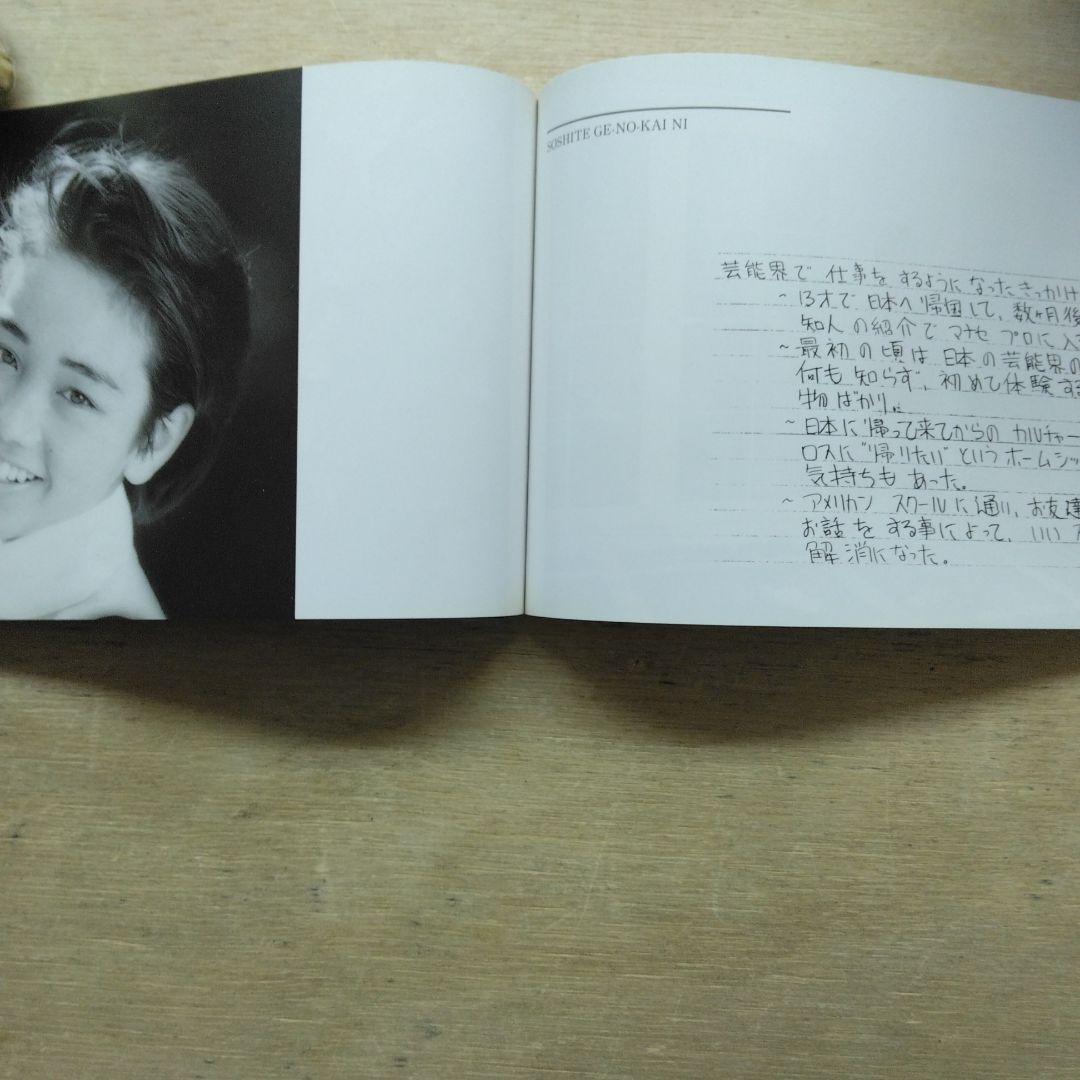 SOSHITE GE-NO-KAI NI
芸能界で仕事をするようになったきっかけ
~ 13才で日本へ帰国して、数ヶ月後
知人の紹介でマナセプロに入
~ 最初の頃は日本の芸能界の
何も知らず、初めて体験す
物ばかり。
~ 日本に帰って来てからのカルチャー
ロスに"帰りたい"というホームシッ
気持ちもあった。
~ アメリカンスクールに通い、お友達
お話をする事によって、いい
解消になった。